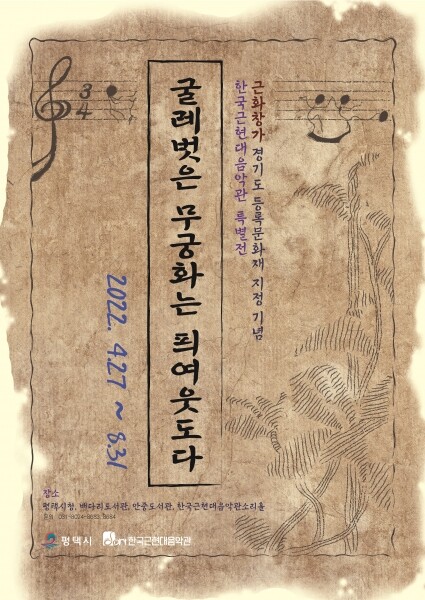 근화창가 경기도 등록문화재 지정 기념
한국근현대음악관 특별전
굴레벗은 무궁화는 픠여웃도다
2022. 4.27 ~ 8.31
장소
평택시청, 배다리도서관, 안중도서관, 한국근현대음악관소리울
문의 031-8024-8683
평택시
한국근현대음악관